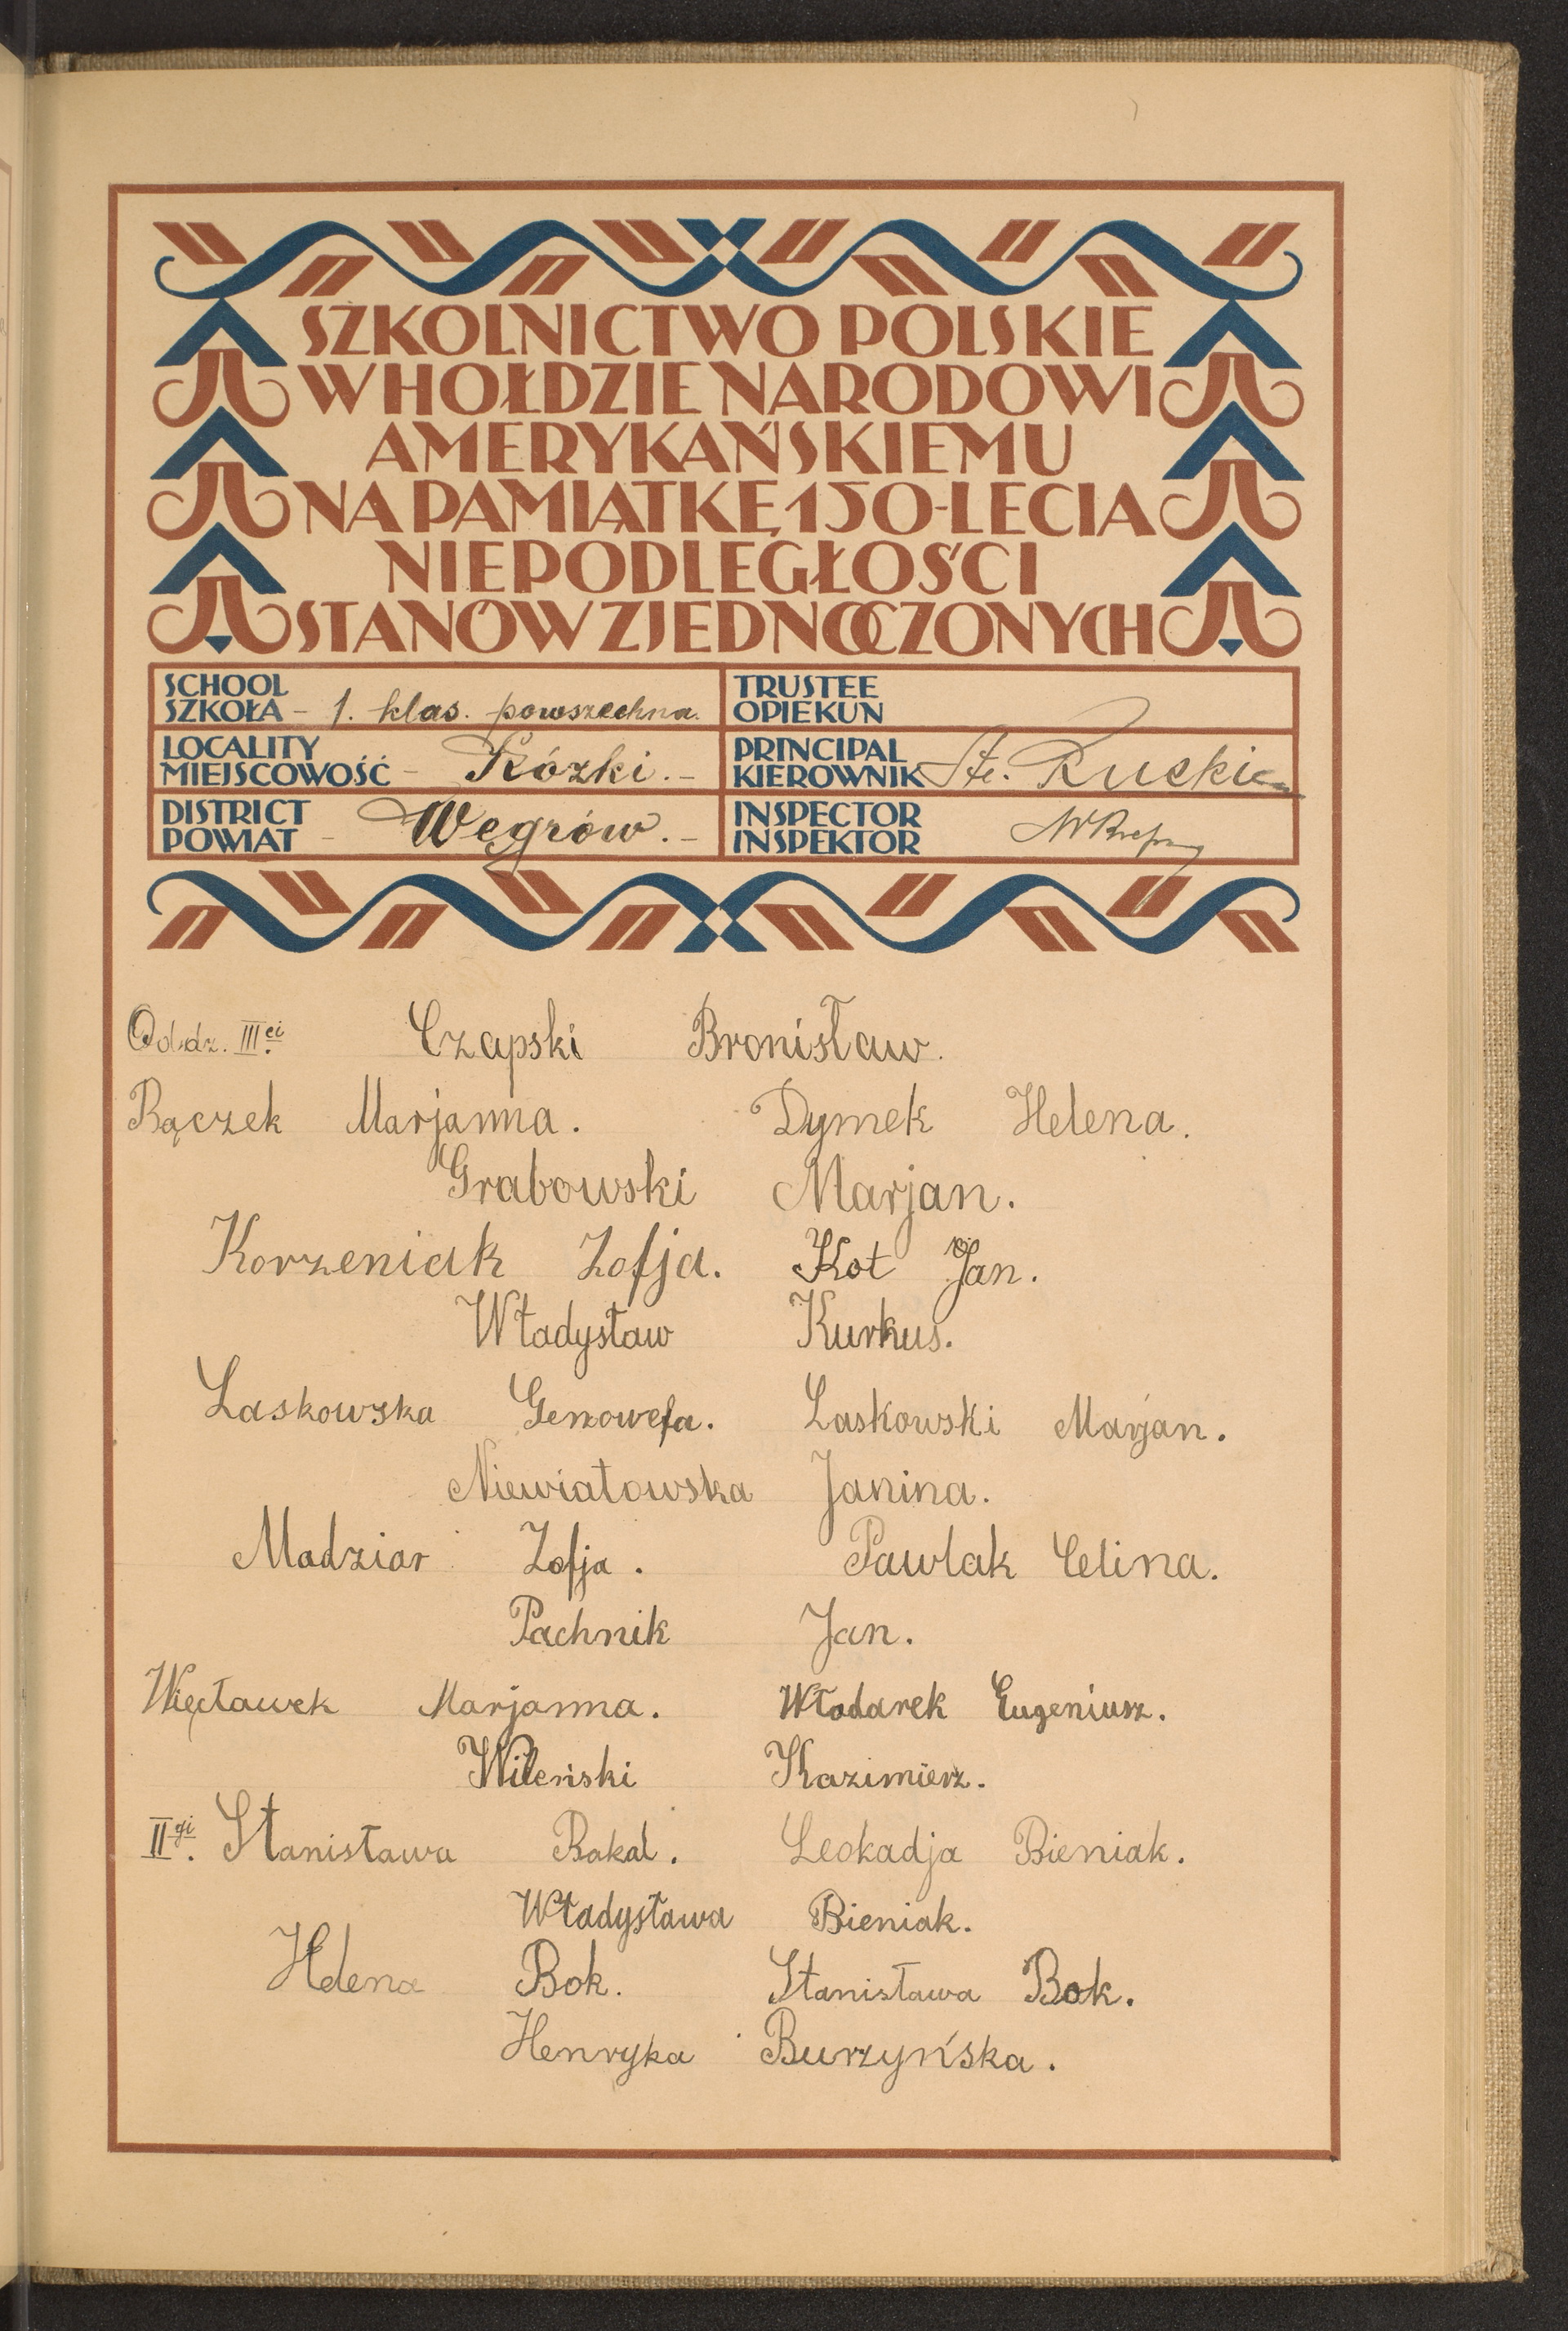 SZKOLNICTWO POLSKIE
W HOŁDZIE NARODOWI
AMERYKAŃSKIEMU
NA PAMIĄTKĘ 150-LECIA
NIEPODLEGŁOŚCI
STANÓW ZJEDNOCZONYCH
SCHOOL
SZKOŁA - 1. klas. powszechna.
LOCALITY
MIEJSCOWOŚĆ - Kózki.-
DISTRICT
POWIAT - Węgrów.-
TRUSTEE
OPIEKUN
PRINCIPAL
KIEROWNIK Ste.
INSPECTOR
INSPEKTOR
Oddz. III ei. Czapski Bronisław.
Bączek Marjanna. Dymek Helena.
Grabowski Marjan.
Korzeniak Zofja. Kot Jan.
Władysław Kurkus.
Laskowska Genowefa. Laskowski Marjan.
Niewiatowska Janina.
Madziar Zofja. Pawlak Celina.
Pachnik Jan.
Więcławek Marjanna. Włodarek Eugeniusz.
Wileński Kazimierz.
II gi. Stanisława Bakal. Leokadja Bieniak.
Władysława Bieniak.
Helena Bok. Stanisława Bok.
Henryka Burzyńska.